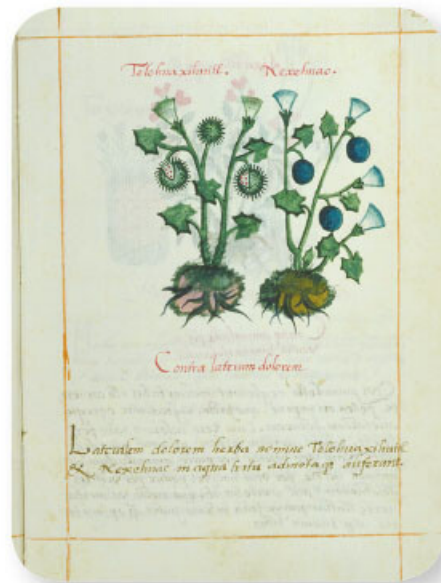 Tolohuaxihuitl. Nexehuac.
Contra laterum dolorem
Lateralem dolorem herbæ nomine Tolohuaxihuitl
& Nexehuac in aqua tritæ admotæq; auferunt.